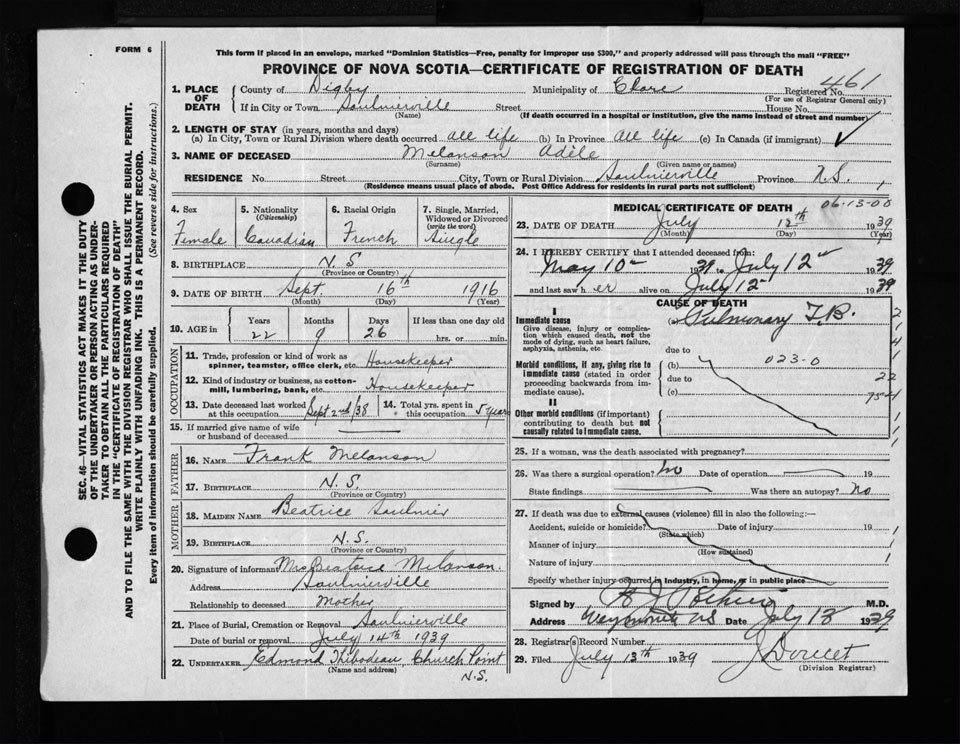 FORM 6
This form if placed in an envelope, marked "Dominion Statistics—Free, penalty for improper use $300," and properly addressed will pass through the mail "FREE"
PROVINCE OF NOVA SCOTIA—CERTIFICATE OF REGISTRATION OF DEATH
SEC. 46—VITAL STATISTICS ACT MAKES IT THE DUTY
OF THE UNDERTAKER OR PERSON ACTING AS UNDER-
TAKER TO OBTAIN ALL THE PARTICULARS REQUIRED
IN THE "CERTIFICATE OF REGISTRATION OF DEATH"
AND TO FILE THE SAME WITH THE DIVISION REGISTRAR WHO SHALL ISSUE THE BURIAL PERMIT.
WRITE PLAINLY WITH UNFADING INK. THIS IS A PERMANENT RECORD.
Every item of information should be carefully supplied. (See reverse side for instructions.)
1. PLACE OF DEATH County of Digby Municipality of Clare Registered No. 461
(For use of Registrar General only)
If in City or Town Saulnierville Street House No.
(Name) (If death occurred in a hospital or institution, give the name instead of street and number)
2. LENGTH OF STAY (in years, months and days)
(a) In City, Town or Rural Division where death occurred all life (b) In Province all life (c) In Canada (if immigrant) ✓
3. NAME OF DECEASED Melanson Adèle
(Surname) (Given name or names)
RESIDENCE No. Street City, Town or Rural Division Saulnierville Province N.S. 1
(Residence means usual place of abode. Post Office Address for residents in rural parts not sufficient)
4. Sex Female
5. Nationality (Citizenship) Canadian
6. Racial Origin French
7. Single, Married, Widowed or Divorced (write the word) Single
8. BIRTHPLACE N.S
(Province or Country)
9. DATE OF BIRTH Sept. 16th 1916
(Month) (Day) (Year)
10. AGE in Years 22 Months 9 Days 26 If less than one day old hrs. or min.
OCCUPATION
11. Trade, profession or kind of work as spinner, teamster, office clerk, etc. Housekeeper
12. Kind of industry or business, as cotton-mill, lumbering, bank, etc. Housekeeper
13. Date deceased last worked at this occupation Sept 2nd/38
14. Total yrs. spent in this occupation 5 years
15. If married give name of wife or husband of deceased
FATHER
16. NAME Frank Melanson
17. BIRTHPLACE N.S.
(Province or Country)
MOTHER
18. MAIDEN NAME Beatrice Saulnier
19. BIRTHPLACE N.S.
(Province or Country)
20. Signature of informant Mrs Beatrice Melanson.
Address Saulnierville
Relationship to deceased Mother
21. Place of Burial, Cremation or Removal Saulnierville
Date of burial or removal July 14th 1939
22. UNDERTAKER Edmond Thibodeau Church Point
(Name and address) N.S.
MEDICAL CERTIFICATE OF DEATH
06-13-00
23. DATE OF DEATH July 12th 1939
(Month) (Day) (Year)
24. I HEREBY CERTIFY that I attended deceased from
May 10 1939 to July 12 1939
and last saw her alive on July 12 1939
CAUSE OF DEATH
I
Immediate cause (a) Pulmonary T.B.
Give disease, injury or complication which caused death, not the mode of dying, such as heart failure, asphyxia, asthenia, etc.
due to
Morbid conditions, if any, giving rise to immediate cause (stated in order proceeding backwards from immediate cause). (b) 023-0
due to 22
(c)
II
Other morbid conditions (if important) contributing to death but not causally related to immediate cause.
25. If a woman, was the death associated with pregnancy?
26. Was there a surgical operation? No Date of operation 19
State findings Was there an autopsy? No
27. If death was due to external causes (violence) fill in also the following:—
Accident, suicide or homicide? Date of injury 19
(State which)
Manner of injury
(How sustained)
Nature of injury
Specify whether injury occurred in industry, in home, or in public place
Signed by M.D.
Weymouth NS Date July 18 1939
28. Registrar's Record Number
29. Filed July 13th 1939 J Doucet
(Division Registrar)